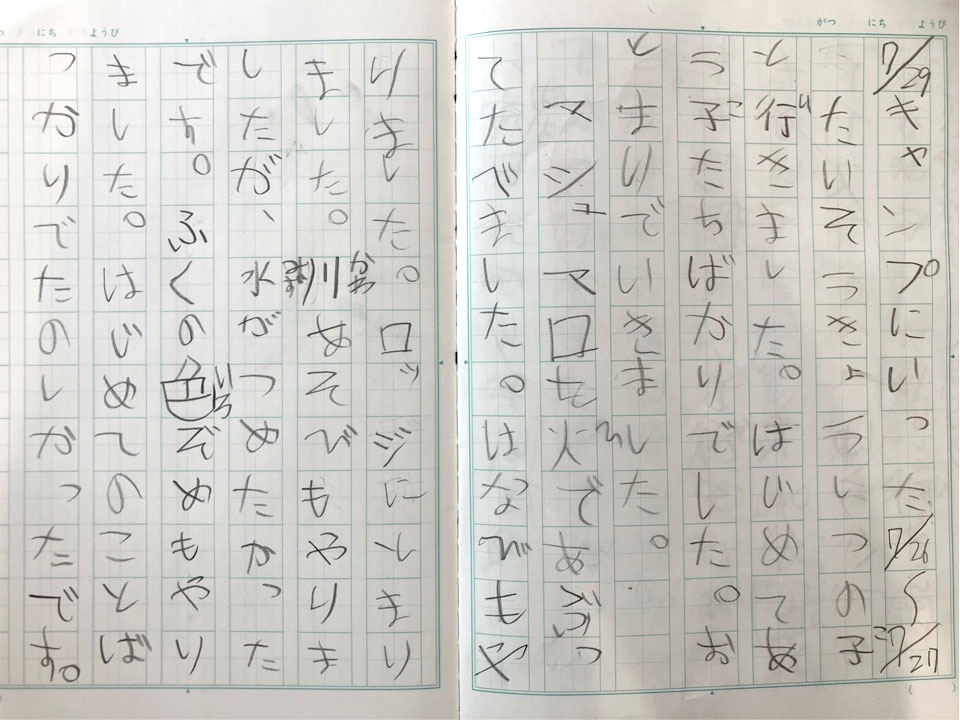 がつ にち ようび
7/29 きゃンプにいった 7/26〜7/27
たいそうきょうしつの子こ
と行いきました。はじめてあ
う子こたちばかりでした。お
とまりでいきました。
マシュマロも火ひであぶっ
てたべました。はなびもや
にち ようび
りました。ロッジにとまり
ました。川かわあそびもやりま
したが、水みずがつめたかった
です。ふくの色いろぞめもやり
ました。はじめてのことば
っかりでたのしかったです。